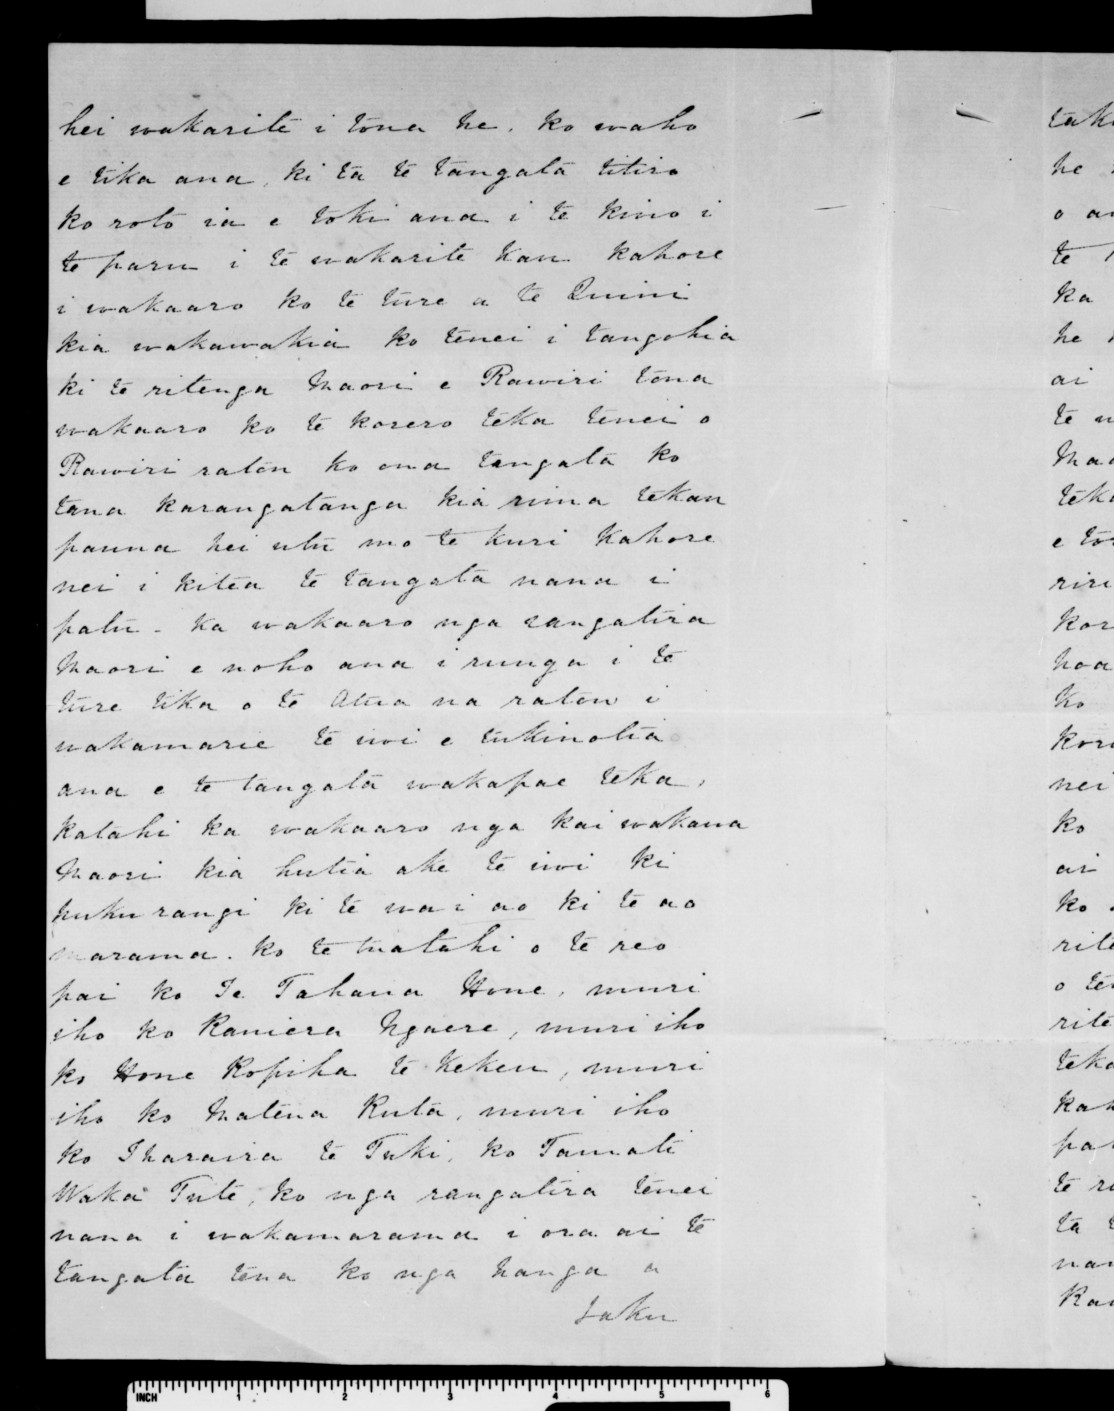 hei wakarite i tona he. ko waho
e tika ana, ki ta te tangata titiro
ko roto ia e toki ana i te kino i
te paru i te wakarite kau kahore
i wakaaro ko te ture a te Quini
kia wakawakia ko tenei i tangohia
ki te ritenga Maori e Rawiri tona
wakaaro ko te korero teka tenei o
Rawiri ratou ko ona tangata ko
tana karangatanga kia rima tekau
pauna hei utu mo te kuri kahore
nei i kitea te tangata nana i
patu - ka wakaaro nga rangatira
Maori e noho ana i runga i te
ture tika o te Atua na ratou i
wakamarie te iwi e tukinotia
ana e te tangata wakapae teka,
katahi ka wakaaro nga kai wakawa
Maori kia hutia ake te iwi ki
ki te wa i ao ki te ao
marama. ko te tuatahi o te reo
pai ko Te Tahana Hone, muri
iho ko Raniera Ngaere, muri iho
ko Hone Ropiha te Kekeu, muri
iho ko Matena Ruta, muri iho
ko Iharaira te Tuki, ko Tamati
Waka Tute, ko nga rangatira tenei
nana i wakamarama i ora ai te
tangata tena ko nga hanga a
taku
he
te
ka
he
ai
ko
nei
ko
ai
ko